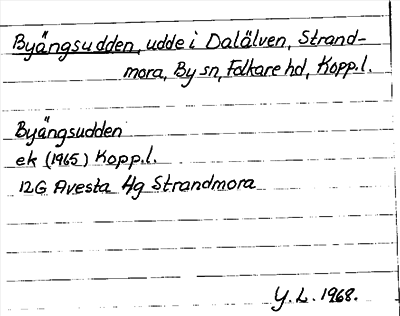 Byängsudden, udde i Dalälven, Strand-
mora, By sn, Folkare hd, Kopp.l.
Byängsudden
ek (1965) Kopp.l.
12G Avesta 4g Strandmora
Y.L. 1968.